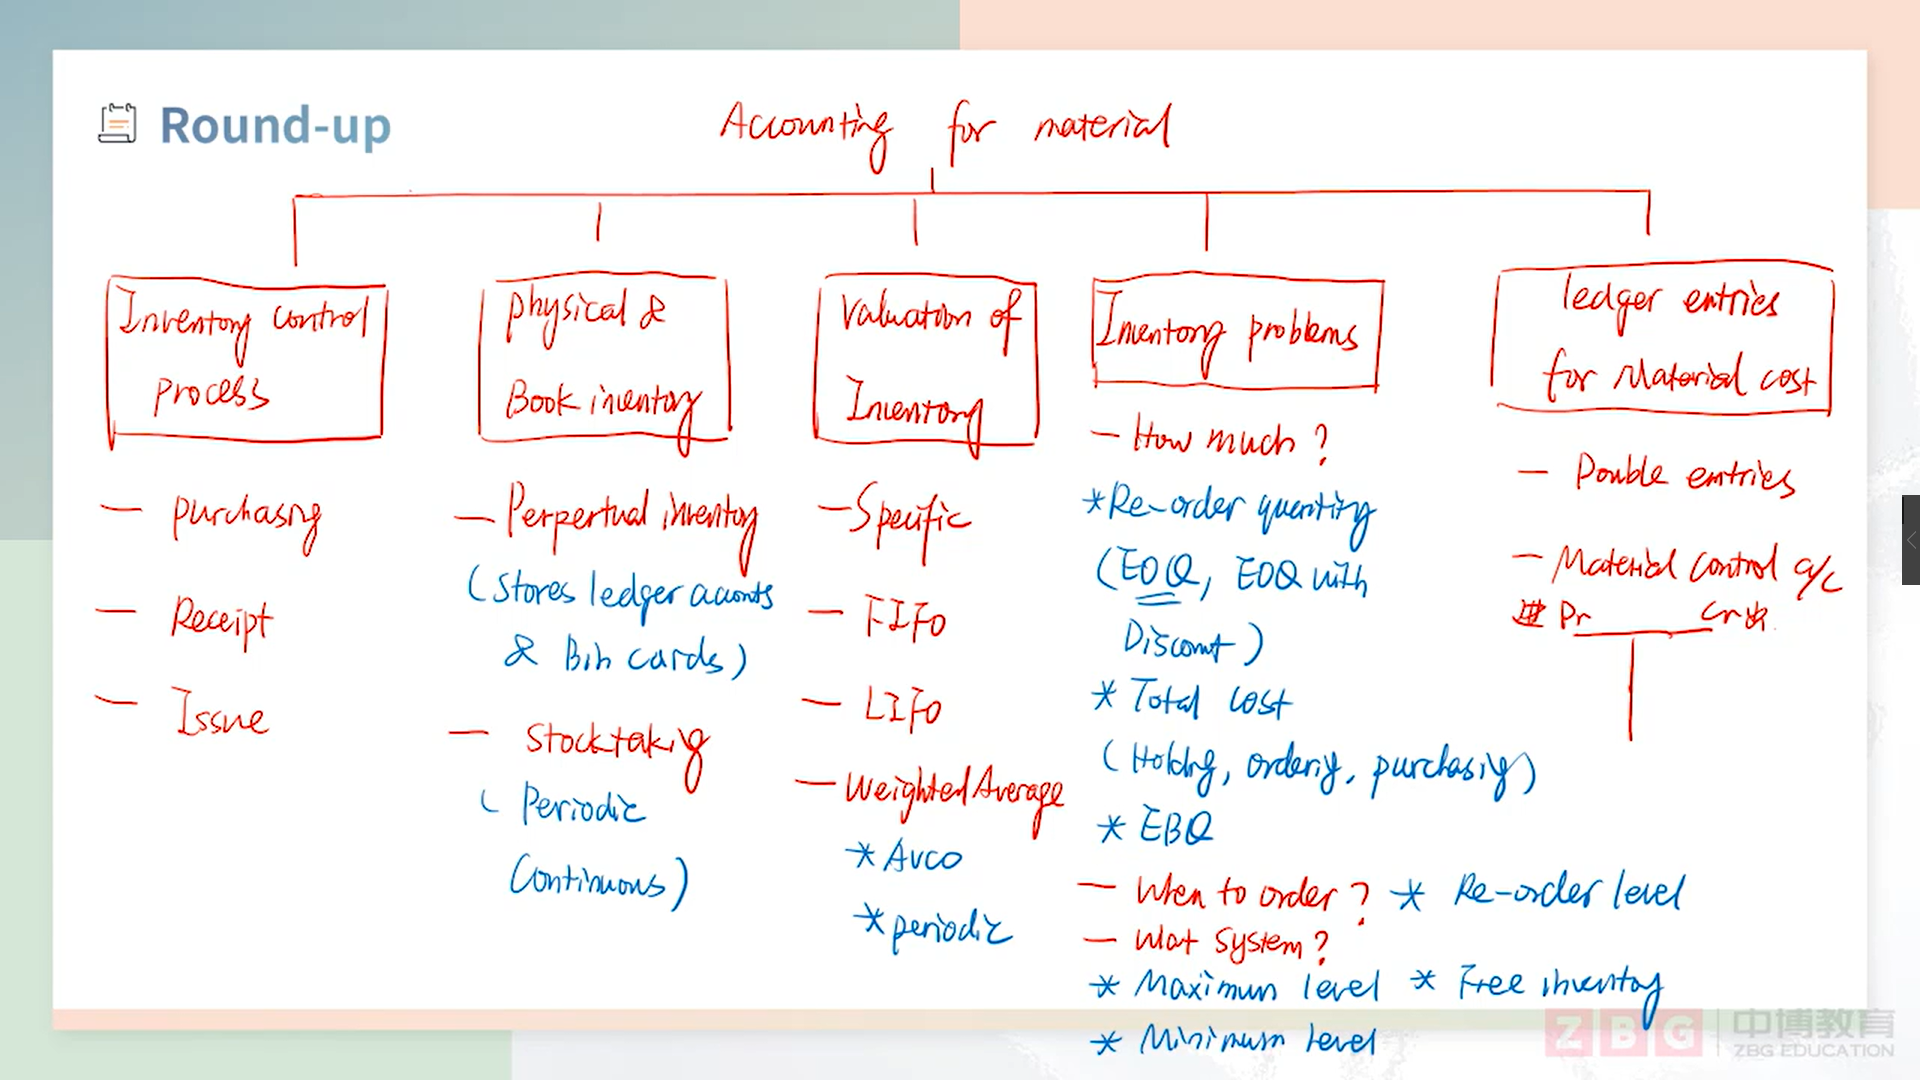 Round-up
Accounting for material
Inventory control
process
- purchasing
- Receipt
- Issue
physical &
Book inventory
- Perpertual inventory
(Stores ledger acconts
& Bin cards)
- Stocktaking
( Periodic
Continuous)
Valuation of
Inventory
- Specific
- FIFO
- LIFO
- Weighted Average
* AVCO
* periodic
Inventory problems
- How much?
* Re-order quantity
(EOQ, EOQ with
Discount)
* Total cost
(Holding, ordering, purchasing)
* EBQ
- When to order? * Re-order level
- Wat system?
* Maximum level * Free inventory
* Minimum level
ledger entries
for Material cost
- Double entries
- Material control a/c
进 Dr Cr 出
ZBG 中博教育
ZBG EDUCATION